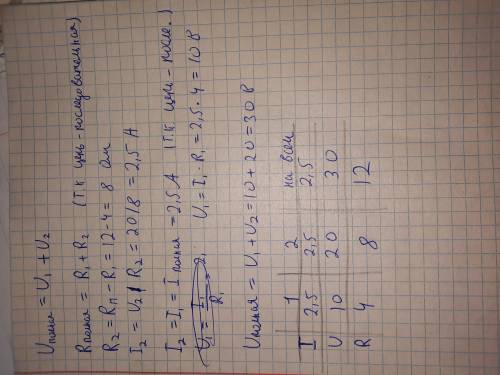 Uполная = U₁ + U₂
Rполная = R₁ + R₂ (т.к цепь - последовательная)
R₂ = Rп - R₁ = 12 - 4 = 8 Ом
I₂ = U₂ / R₂ = 20/8 = 2,5 А
I₂ = I₁ = I полная = 2,5 А (т.к цепь - после.)
U₁ = I₁ · R₁ = 2,5 · 4 = 10 В
Uполная = U₁ + U₂ = 10 + 20 = 30 В
1 2 на всем
I 2,5 2,5 2,5
U 10 20 30
R 4 8 12